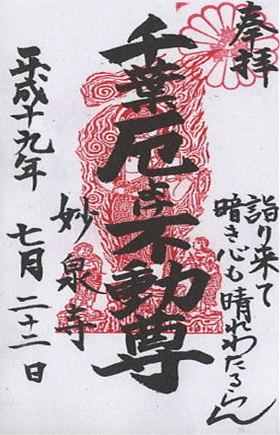 奉拝
詣り来て
暗き心も晴れわたるらん
千葉厄よけ不動尊
妙泉寺
平成十九年 七月二十二日